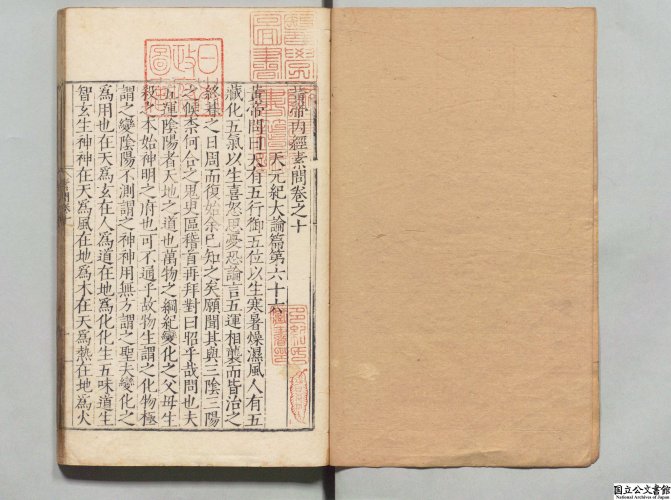 黃帝內經素問卷之十
天元紀大論篇第六十六
黃帝問曰天有五行御五位以生寒暑燥濕風人有五
藏化五氣以生喜怒思憂恐論言五運相襲而皆治之
終朞之日周而復始余已知之矣願聞其與三陰三陽
之候柰何合之鬼臾區稽首再拜對曰昭乎哉問也夫
五運陰陽者天地之道也萬物之綱紀變化之父母生
殺之本始神明之府也可不通乎故物生謂之化物極
謂之變陰陽不測謂之神神用無方謂之聖夫變化之
為用也在天為玄在人為道在地為化化生五味道生
智玄生神神在天為風在地為木在天為熱在地為火
国立公文書館
National Archives of Japan